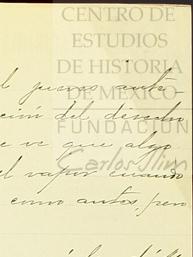 CENTRO DE
ESTUDIOS
DE HISTORIA
DE MEXICO
FUNDACIÓN
Carlos Slim
l jueves ante-
ción del derecho
e ve que algo
l vapor cuando
como antes, pero